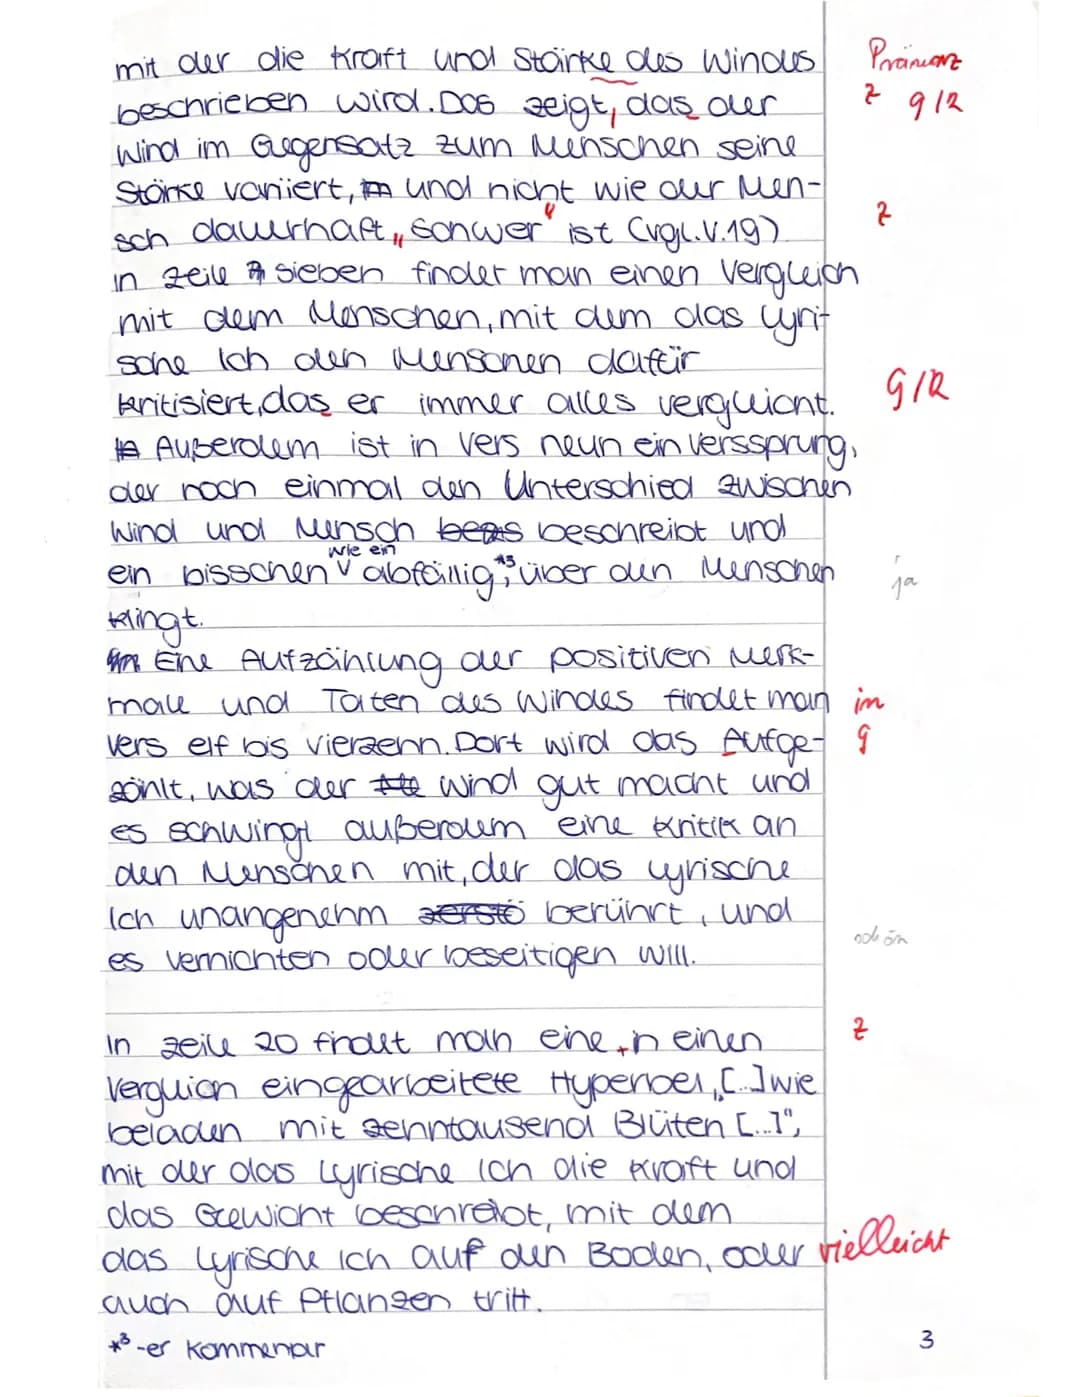 mit der die Kraft und Stärke des Windes Prämanz
beschrieben wird. Das zeigt, das der z g/R
Wind im Gegensatz zum Menschen seine
Stärke variiert, und nicht wie der Men-
sch dauerhaft „schwer" ist (vgl. V. 19) z
in Zeile sieben findet man einen Vergleich
mit dem Menschen, mit dem das lyri-
sche Ich den Menschen dafür
kritisiert, das er immer alles vergleicht. G/R
Außerdem ist in Vers neun ein Verssprung,
der noch einmal den Unterschied zwischen
Wind und Mensch beschreibt und
wie ein
ein bisschen v abfällig *3, über den Menschen ja
klingt.
Eine Aufzählung der positiven Merk-
male und Taten des Windes findet man im
Vers elf bis vierzehn. Dort wird das Aufge- g
zählt, was der Wind gut macht und
es schwingt außerdem eine Kritik an
den Menschen mit, der das lyrische
Ich unangenehm berührt, und
es vernichten oder beseitigen will. schön
In Zeile 20 findet man eine, in einen z
Vergleich eingearbeitete Hyperbel „[...] wie
beladen mit zehntausend Blüten [...]",
mit der das Lyrische Ich die Kraft und
das Gewicht beschreibt, mit dem
das Lyrische Ich auf den Boden, oder vielleicht
auch auf Pflanzen tritt.
*3 -er Kommentar
3